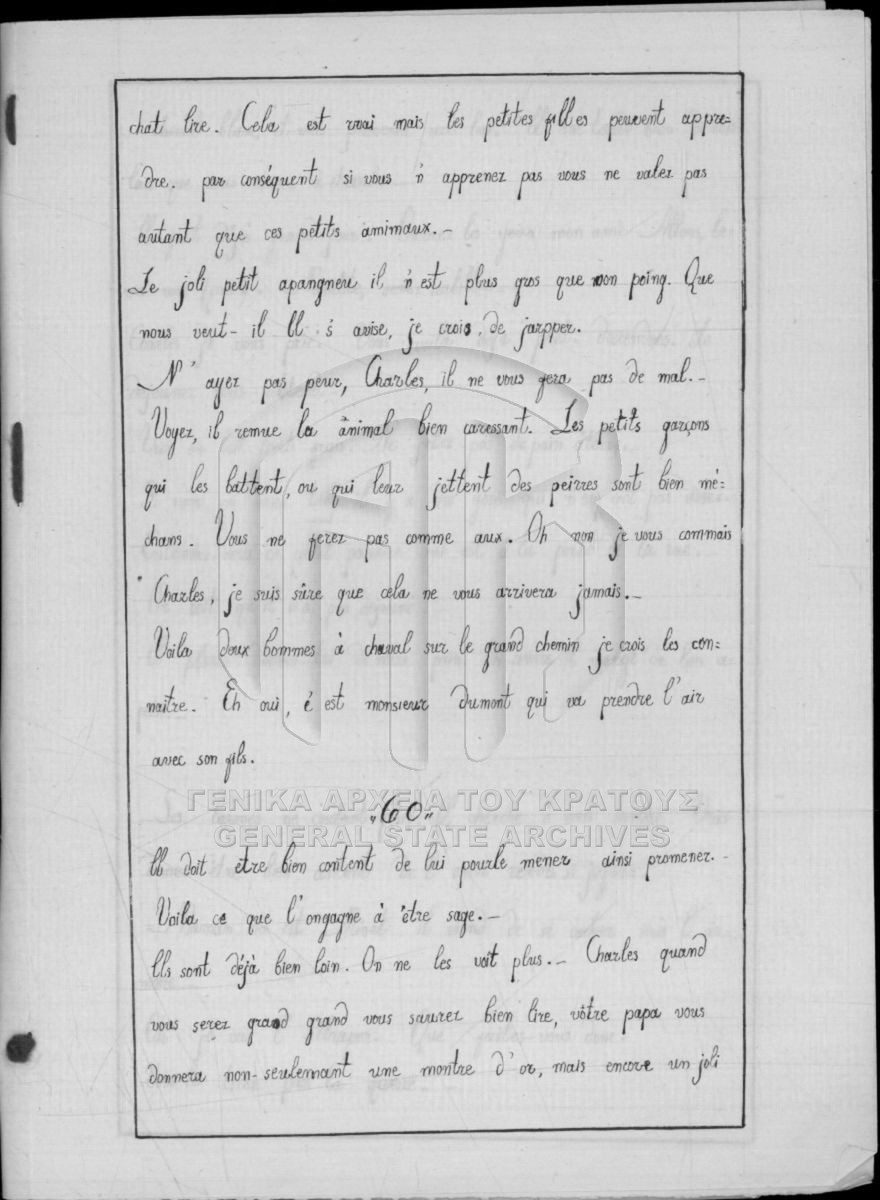 chat lire. Cela est vrai mais les petites filles peuvent appre=
dre. par conséquent si vous n' apprenez pas vous ne valez pas
autant que ces petits amimaux.—
Le joli petit apangneu il n'est plus gros que mon poing. Que
nous veut-il Il s' avise, je crois, de jarpper.
N' ayez pas peur, Charles, il ne vous fera pas de mal.—
Voyez, il remue la animal bien caressant. Les petits garçons
qui les battent, ou qui leur jettent des peirres sont bien mé=
chans. Vous ne ferez pas comme aux. Oh non je vous commais
Charles, je suis sûre que cela ne vous arrivera jamais.—
Voila doux hommes à chaval sur le grand chemin je crois les con=
naitre. Eh oui, é est monsieur dumont qui va prendre l'air
avec son fils.
ΓΕΝΙΚΑ ΑΡΧΕΙΑ ΤΟΥ ΚΡΑΤΟΥΣ
„60„
GENERAL STATE ARCHIVES
Il doit etre bien content de lui pourle mener ainsi promener.-
Voila ce que l'ongagne à être sage.—
Ils sont déjà bien loin. On ne les voit plus.— Charles quand
vous serez grand grand vous saurez bien lire, vôtre papa vous
donnera non-seulemant une montre d'or, mais encore un joli